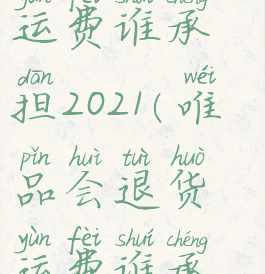 yùn fèi shuí chéng
运费谁承
dān wéi
担2021(唯
pǐn huì tuì huò
品会退货
yùn fèi shuí chéng
运费谁承